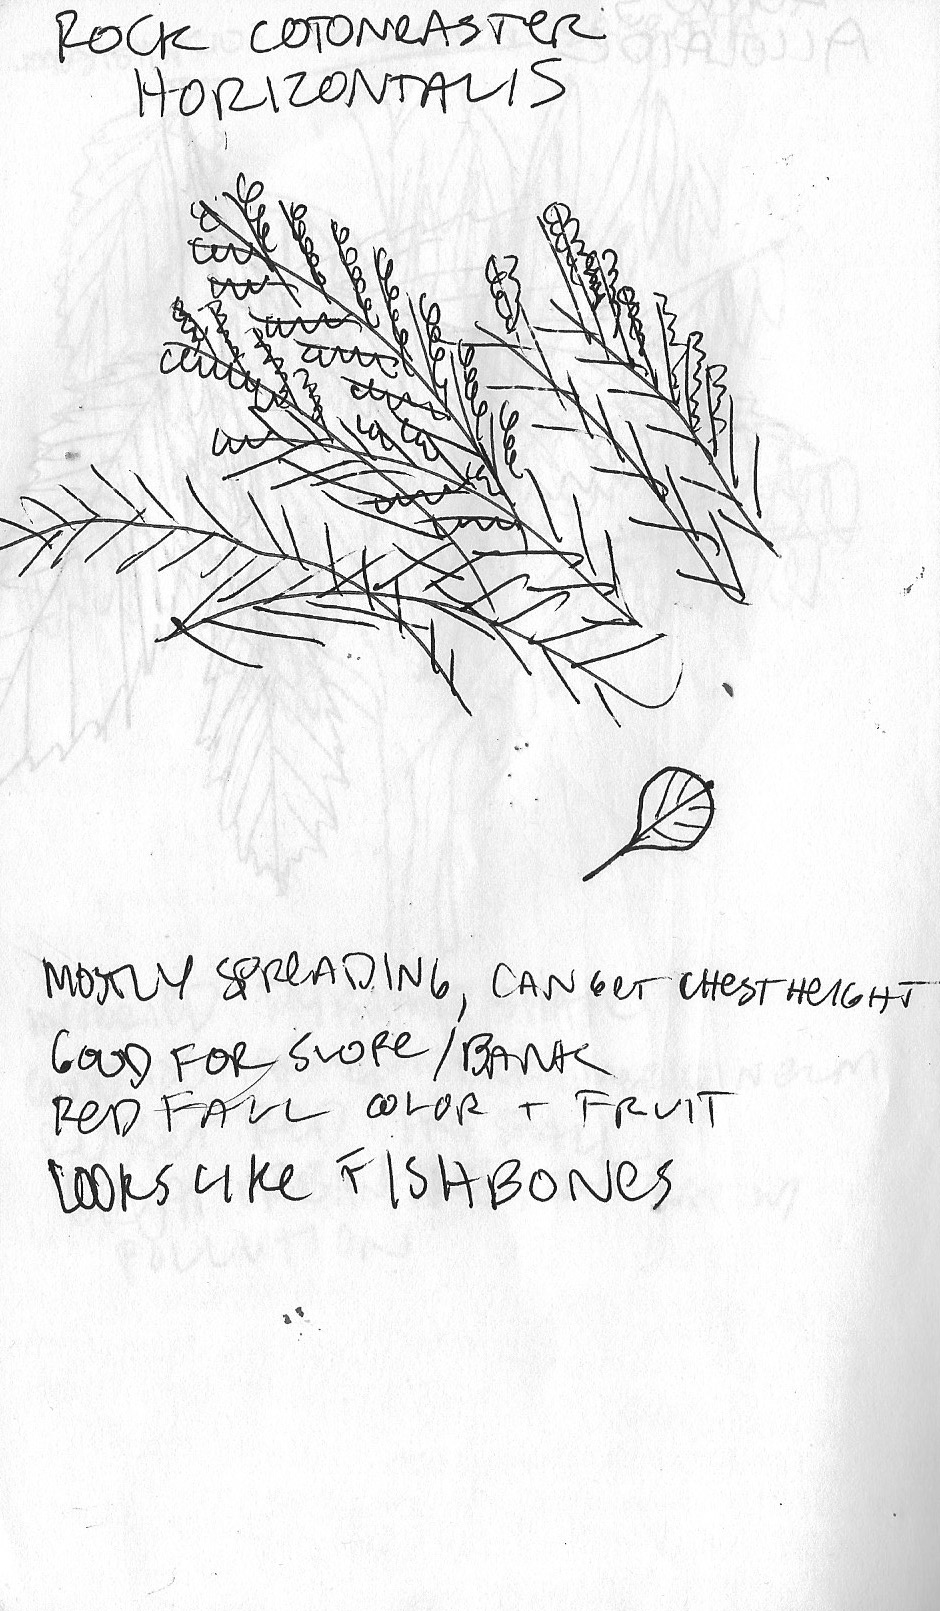 ROCK COTONEASTER
HORIZONTALIS
MOSTLY SPREADING, CAN GET CHEST HEIGHT
GOOD FOR SLOPE/BANK
RED FALL COLOR + FRUIT
LOOKS LIKE FISHBONES